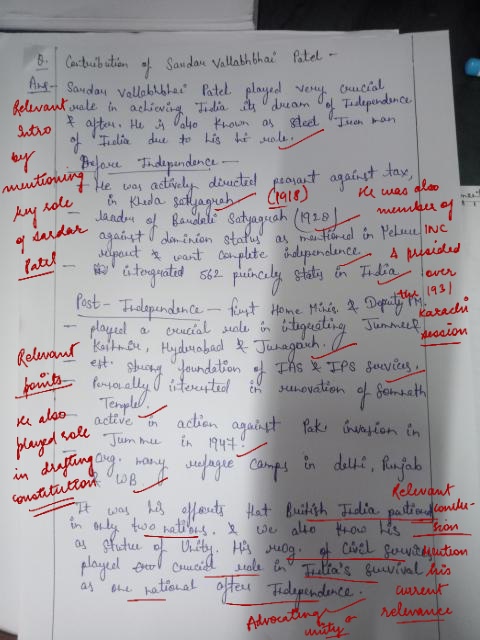 Q. Contribution of Sardar Vallabhbhai Patel -
Ans- Sardar Vallabhbhai Patel played very crucial
role in achieving India its dream of Independence
& after. He is also known as steel Iron man
of India due to his role.
Relevant
Intro
by
mentioning
key role
of Sardar
Patel
Before Independence -
- He was actively directed peasant against tax,
in Kheda Satyagrah (1918)
- leader of Bardoli Satyagrah (1928)
against dominion status as mentioned in Nehru
report & want complete independence
- intergrated 562 princely states in India
He was also
member of
INC
& presided
over
the 1931
Karachi
session
Post - Independence - first Home Minis. & Deputy PM.
- played a crucial role in integrating Jummu &
Kashmir, Hyderabad & Junagarh.
- est. strong foundation of IAS & IPS services.
- Personally interested in renovation of Somnath
Temple.
- active in action against Pak invasion in
Jummu in 1947.
- Org. many refugee camps in delhi, Punjab
& WB.
Relevant
points
He also
played role
in drafting
constitution
It was his efforts that British India partioned
in only two nations. & we also know his
as statue of Unity. His recog. of Civil services
played crucial role in India's survival
as one national after Independence.
Relevant
conclu-
sion
his
current
relevance
Advocating
unity